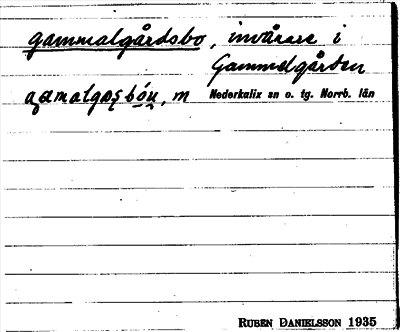 gammalgårdsbo, invånare i
Gammelgården
m Nederkalix sn o. tg. Norrb. län
RUBEN DANIELSSON 1935